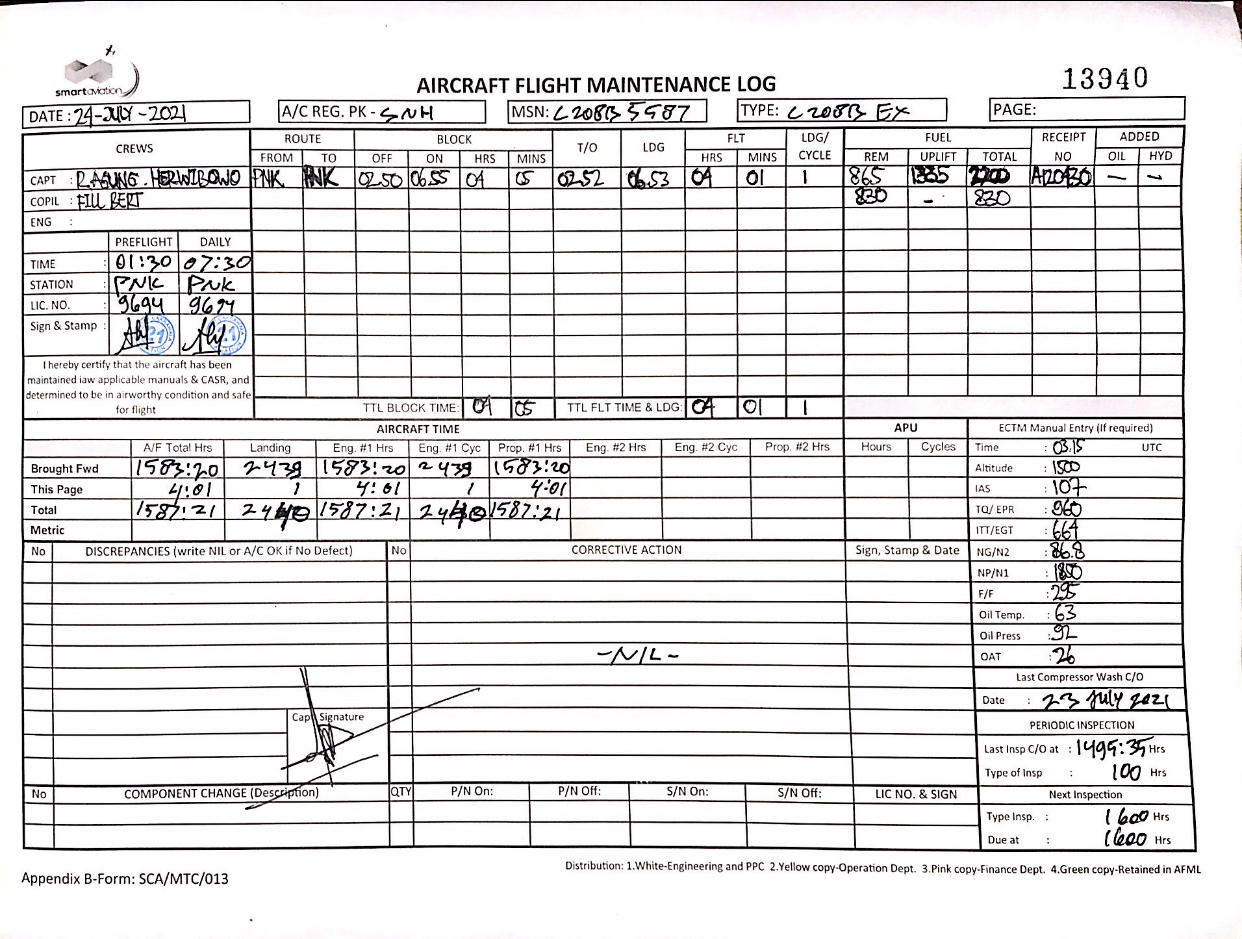 smartaviation
AIRCRAFT FLIGHT MAINTENANCE LOG
13940
DATE : 24-JULY-2021 A/C REG. PK - SNH MSN: C208B5587 TYPE: C208B EX PAGE:
CREWS ROUTE BLOCK T/O LDG FLT LDG/ CYCLE FUEL RECEIPT NO ADDED
FROM TO OFF ON HRS MINS HRS MINS REM UPLIFT TOTAL OIL HYD
CAPT : R.AGUNG.HERWIBOWO PNK PNK 02.50 06.55 04 05 02.52 06.53 04 01 1 865 1335 2200 — —
COPIL : FILL BERT 830 - 830
ENG :
PREFLIGHT DAILY
TIME : 01:30 07:30
STATION : PNK PNK
LIC. NO. : 9694 9694
Sign & Stamp :
I hereby certify that the aircraft has been
maintained iaw applicable manuals & CASR, and
determined to be in airworthy condition and safe
for flight
TTL BLOCK TIME: 04 05 TTL FLT TIME & LDG: 04 01 1
AIRCRAFT TIME APU ECTM Manual Entry (If required)
A/F Total Hrs Landing Eng. #1 Hrs Eng. #1 Cyc Prop. #1 Hrs Eng. #2 Hrs Eng. #2 Cyc Prop. #2 Hrs Hours Cycles Time : 03.15 UTC
Brought Fwd 1583:20 2439 1583:20 2439 1583:20 Altitude : 1500
This Page 4:01 1 4:01 1 4:01 IAS : 107
Total 1587:21 2440 1587:21 2440 1587:21 TQ/ EPR : 960
Metric ITT/EGT : 664
No DISCREPANCIES (write NIL or A/C OK if No Defect) No CORRECTIVE ACTION Sign, Stamp & Date NG/N2 : 86.8
NP/N1 : 1850
F/F : 295
Oil Temp. : 63
Oil Press : 92
-NIL- OAT : 26
Last Compressor Wash C/O
Date : 23 July 2021
Capt Signature
PERIODIC INSPECTION
Last Insp C/O at : 1495:35 Hrs
Type of Insp : 100 Hrs
No COMPONENT CHANGE (Description) QTY P/N On: P/N Off: S/N On: S/N Off: LIC NO. & SIGN Next Inspection
Type Insp. : 1600 Hrs
Due at : 1600 Hrs
Distribution: 1.White-Engineering and PPC 2.Yellow copy-Operation Dept. 3.Pink copy-Finance Dept. 4.Green copy-Retained in AFML
Appendix B-Form: SCA/MTC/013